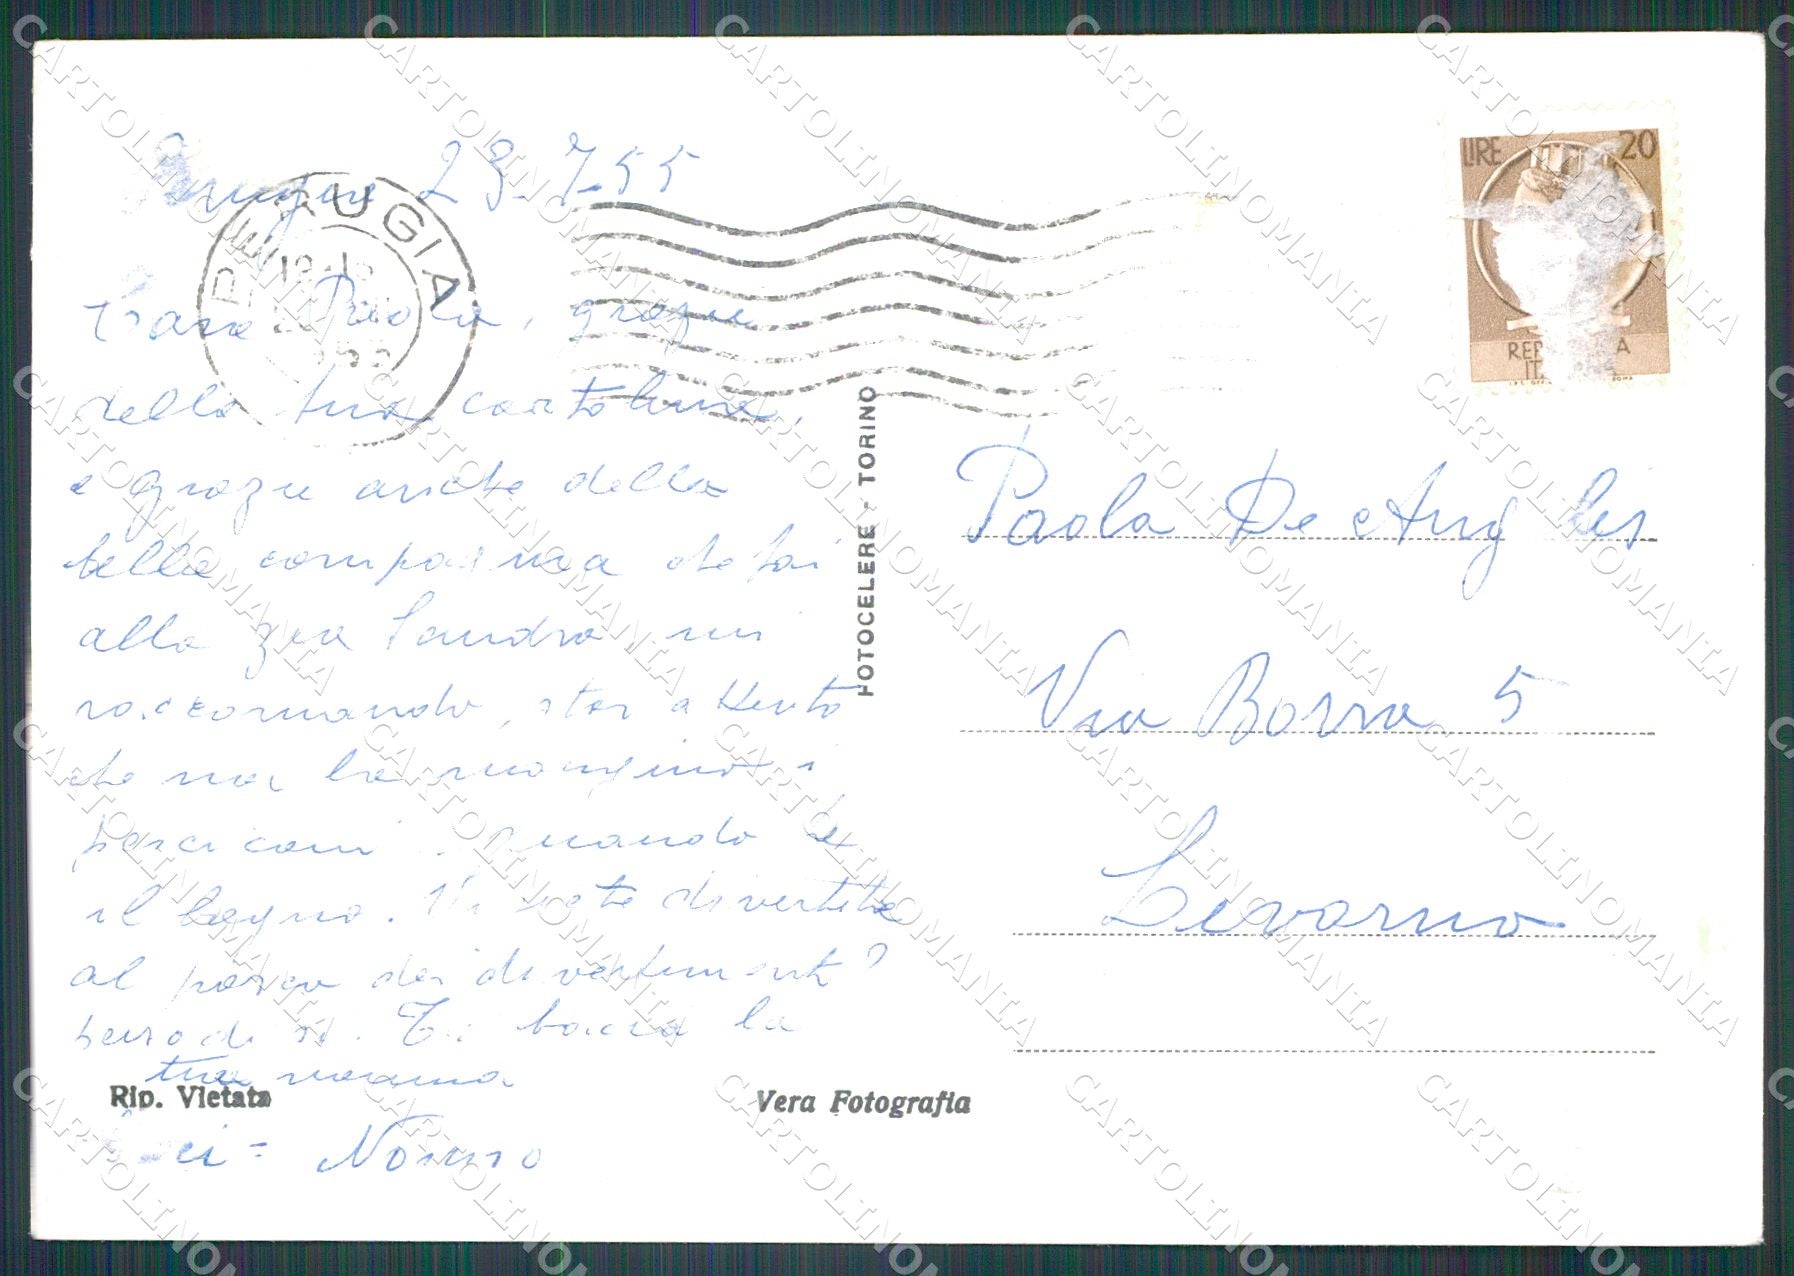 Perugia 23-7-55
Cara Paola, grazie
della tua cartolina,
e grazie anche della
bella compagnia che fai
alla zia Sandra mi
raccomando, stai attento
che non la mangino i
pescicani quando fa
il bagno. Vi siete divertite
al parco dei divertimenti?
penso di si. Ti bacia la
tua nonna
Baci = Nonno
PERUGIA
FOTOCELERE - TORINO
LIRE 20
REPUBBLICA
ITALIANA
Paola De Angelis
Via Borra 5
Livorno
Rip. Vietata
Vera Fotografia
CARTOLINOMANIA